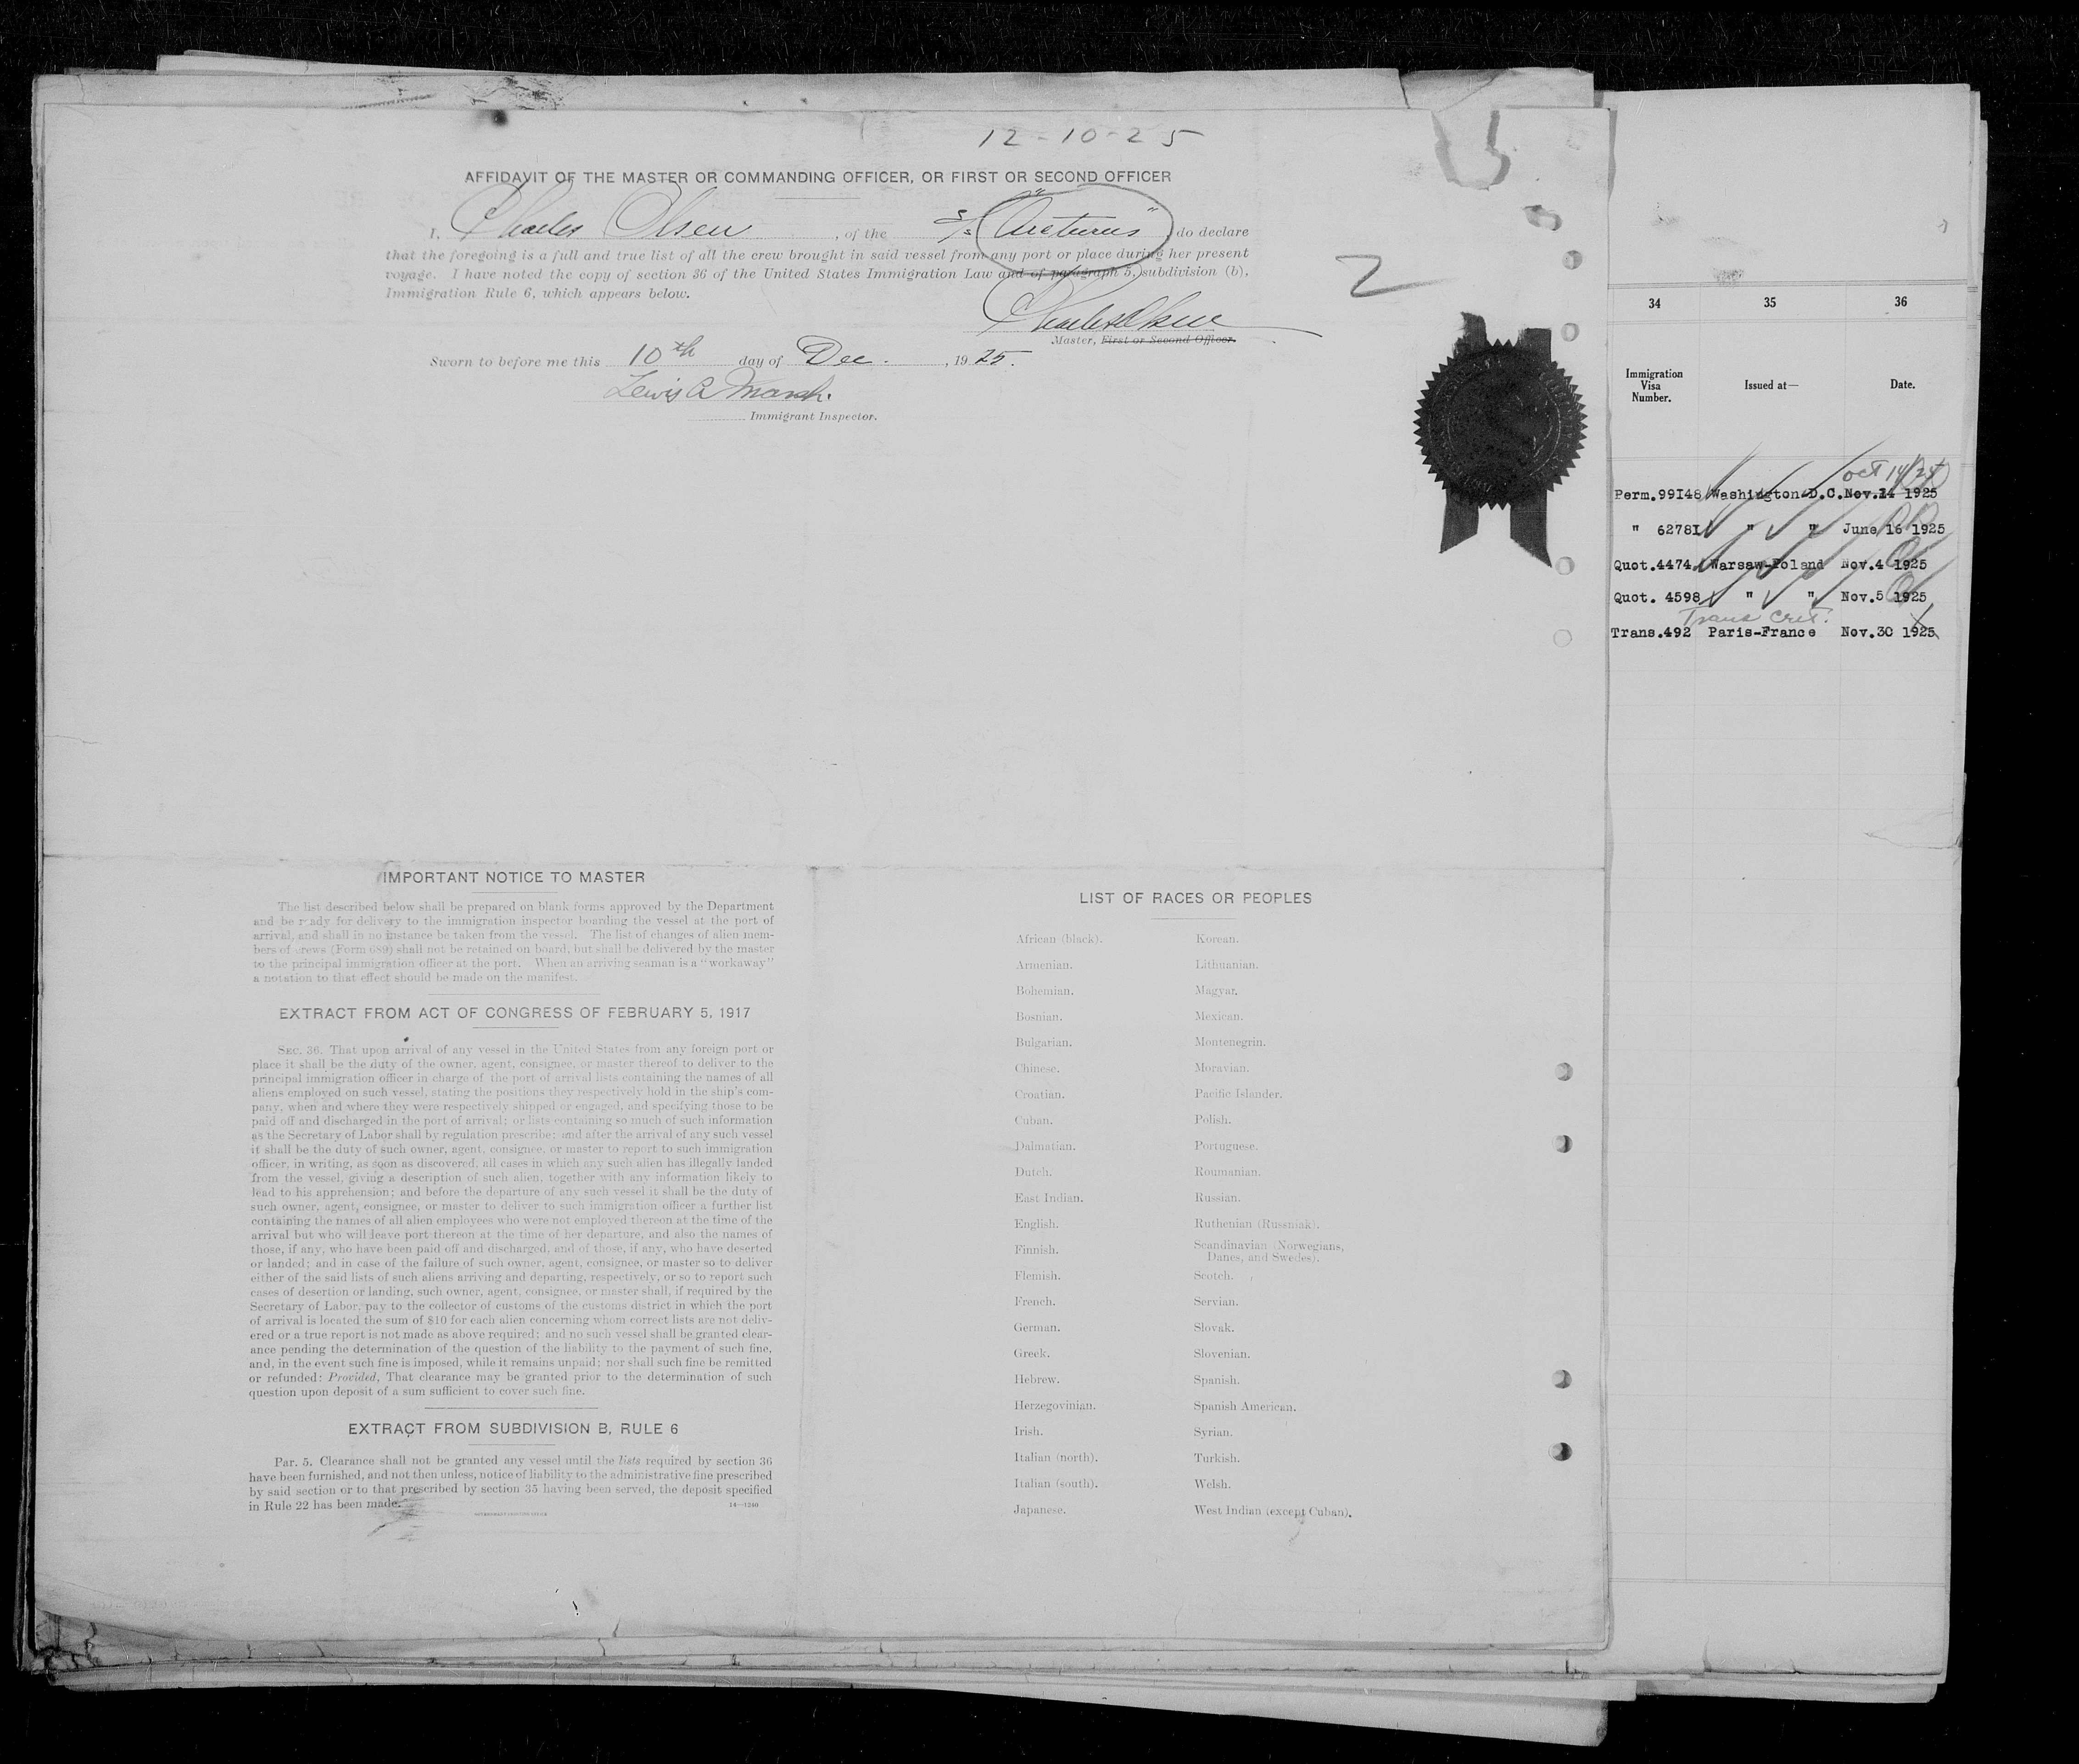 12-10-25
AFFIDAVIT OF THE MASTER OR COMMANDING OFFICER, OR FIRST OR SECOND OFFICER
I, Charles Olsen, of the S/S "Arcturus", do declare
that the foregoing is a full and true list of all the crew brought in said vessel from any port or place during her present
voyage. I have noted the copy of section 36 of the United States Immigration Law and of paragraph 5, subdivision (b),
Immigration Rule 6, which appears below.
2
Charles Olsen
Master, First or Second Officer.
Sworn to before me this 10th day of Dec., 1925.
Lewis A Marsh.
Immigrant Inspector.
IMPORTANT NOTICE TO MASTER
The list described below shall be prepared on blank forms approved by the Department
and be ready for delivery to the immigration inspector boarding the vessel at the port of
arrival, and shall in no instance be taken from the vessel. The list of changes of alien mem-
bers of crews (Form 689) shall not be retained on board, but shall be delivered by the master
to the principal immigration officer at the port. When an arriving seaman is a "workaway"
a notation to that effect should be made on the manifest.
EXTRACT FROM ACT OF CONGRESS OF FEBRUARY 5, 1917
SEC. 36. That upon arrival of any vessel in the United States from any foreign port or
place it shall be the duty of the owner, agent, consignee, or master thereof to deliver to the
principal immigration officer in charge of the port of arrival lists containing the names of all
aliens employed on such vessel, stating the positions they respectively hold in the ship's com-
pany, when and where they were respectively shipped or engaged, and specifying those to be
paid off and discharged in the port of arrival; or lists containing so much of such information
as the Secretary of Labor shall by regulation prescribe; and after the arrival of any such vessel
it shall be the duty of such owner, agent, consignee, or master to report to such immigration
officer, in writing, as soon as discovered, all cases in which any such alien has illegally landed
from the vessel, giving a description of such alien, together with any information likely to
lead to his apprehension; and before the departure of any such vessel it shall be the duty of
such owner, agent, consignee, or master to deliver to such immigration officer a further list
containing the names of all alien employees who were not employed thereon at the time of the
arrival but who will leave port thereon at the time of her departure, and also the names of
those, if any, who have been paid off and discharged, and of those, if any, who have deserted
or landed; and in case of the failure of such owner, agent, consignee, or master so to deliver
either of the said lists of such aliens arriving and departing, respectively, or so to report such
cases of desertion or landing, such owner, agent, consignee, or master shall, if required by the
Secretary of Labor, pay to the collector of customs of the customs district in which the port
of arrival is located the sum of $10 for each alien concerning whom correct lists are not deliv-
ered or a true report is not made as above required; and no such vessel shall be granted clear-
ance pending the determination of the question of the liability to the payment of such fine,
and, in the event such fine is imposed, while it remains unpaid; nor shall such fine be remitted
or refunded: Provided, That clearance may be granted prior to the determination of such
question upon deposit of a sum sufficient to cover such fine.
EXTRACT FROM SUBDIVISION B, RULE 6
Par. 5. Clearance shall not be granted any vessel until the lists required by section 36
have been furnished, and not then unless, notice of liability to the administrative fine prescribed
by said section or to that prescribed by section 35 having been served, the deposit specified
in Rule 22 has been made.
14—1240
GOVERNMENT PRINTING OFFICE
LIST OF RACES OR PEOPLES
African (black).
Armenian.
Bohemian.
Bosnian.
Bulgarian.
Chinese.
Croatian.
Cuban.
Dalmatian.
Dutch.
East Indian.
English.
Finnish.
Flemish.
French.
German.
Greek.
Hebrew.
Herzegovinian.
Irish.
Italian (north).
Italian (south).
Japanese.
Korean.
Lithuanian.
Magyar.
Mexican.
Montenegrin.
Moravian.
Pacific Islander.
Polish.
Portuguese.
Roumanian.
Russian.
Ruthenian (Russniak).
Scandinavian (Norwegians,
Danes, and Swedes).
Scotch.
Servian.
Slovak.
Slovenian.
Spanish.
Spanish American.
Syrian.
Turkish.
Welsh.
West Indian (except Cuban).
34 35 36
Immigration
Visa
Number.
Issued at—
Date.
Oct 14/25
Perm.99148 Washington D.C. Nov.14 1925
" 62781 " " June 16 1925
Quot.4474 Warsaw-Poland Nov.4 1925
Quot. 4598 " " Nov.5 1925
Trans Cert.
Trans.492 Paris-France Nov.30 1925